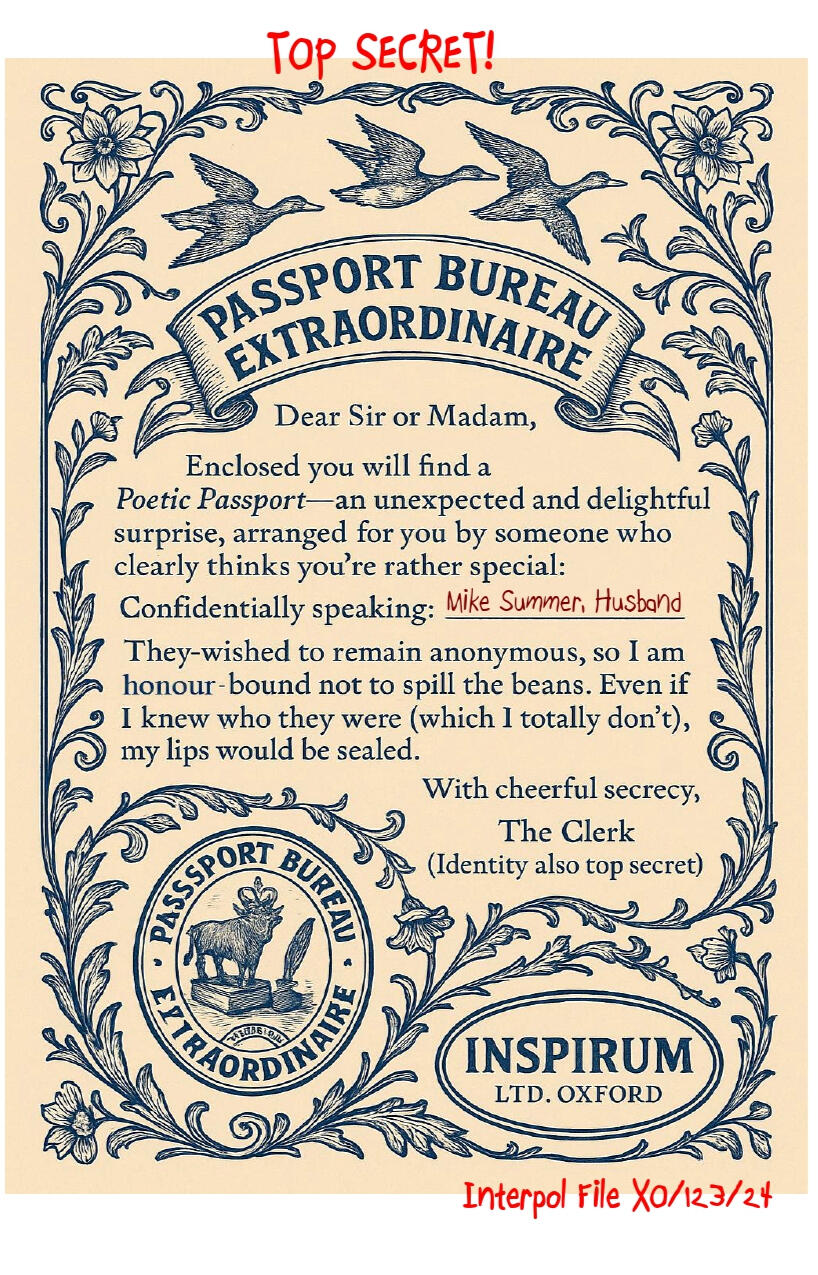 TOP SECRET!
PASSPORT BUREAU
EXTRAORDINAIRE
Dear Sir or Madam,
Enclosed you will find a
Poetic Passport—an unexpected and delightful
surprise, arranged for you by someone who
clearly thinks you're rather special:
Confidentially speaking: Mike Summer, Husband
They-wished to remain anonymous, so I am
honour-bound not to spill the beans. Even if
I knew who they were (which I totally don't),
my lips would be sealed.
With cheerful secrecy,
The Clerk
(Identity also top secret)
PASSSPORT BUREAU
EXTRAORDINAIRE
INSPIRUM
LTD. OXFORD
Interpol File XO/123/24